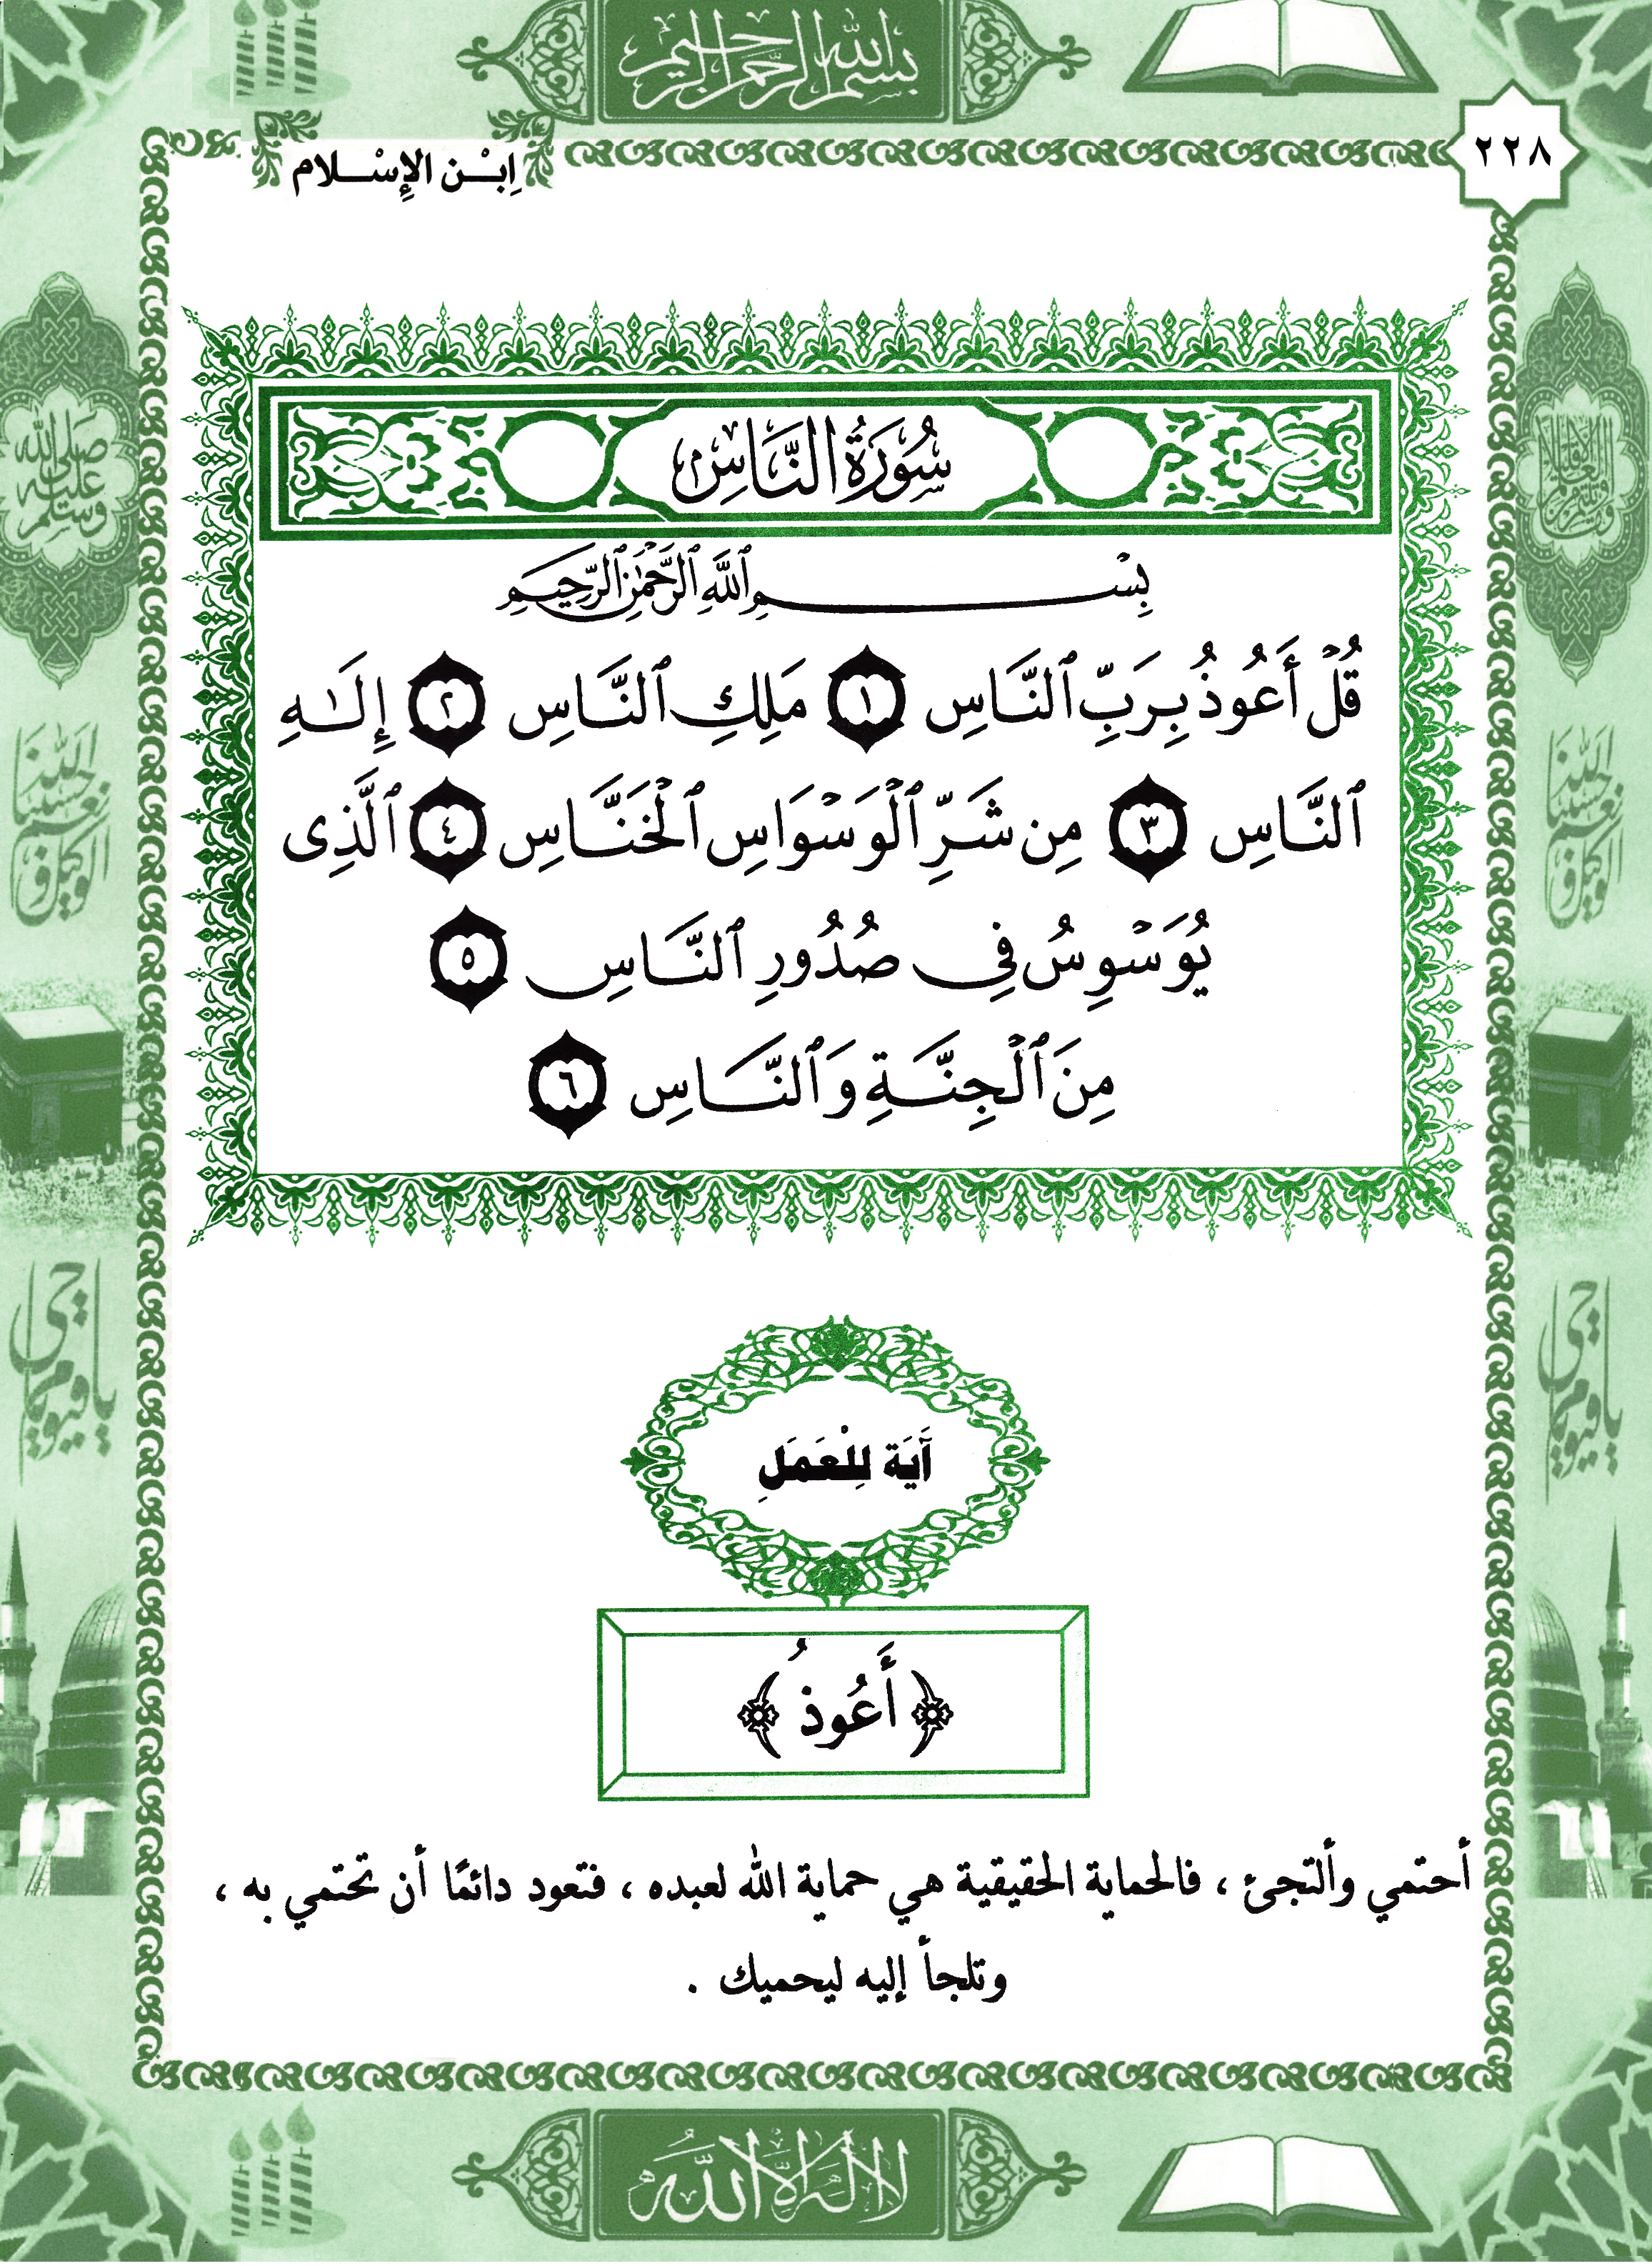 بسم الله الرحمن الرحيم
٢٢٨
اِبْن الإِسْلام
سُورَةُ النَّاسِ
بِسْمِ ٱللَّهِ ٱلرَّحْمَٰنِ ٱلرَّحِيمِ
قُلْ أَعُوذُ بِرَبِّ ٱلنَّاسِ ١ مَلِكِ ٱلنَّاسِ ٢ إِلَٰهِ
ٱلنَّاسِ ٣ مِن شَرِّ ٱلْوَسْوَاسِ ٱلْخَنَّاسِ ٤ ٱلَّذِى
يُوَسْوِسُ فِى صُدُورِ ٱلنَّاسِ ٥
مِنَ ٱلْجِنَّةِ وَٱلنَّاسِ ٦
صلى الله عليه وسلم
حسبنا الله ونعم الوكيل
حسبنا الله ونعم الوكيل
يا حي يا قيوم
يا حي يا قيوم
آيَة لِلْعَمَلِ
﴿أَعُوذُ﴾
أحتمي وألتجئ ، فالحماية الحقيقية هي حماية الله لعبده ، فتعود دائمًا أن تحتمي به ،
وتلجأ إليه ليحميك .
لا إله إلا الله